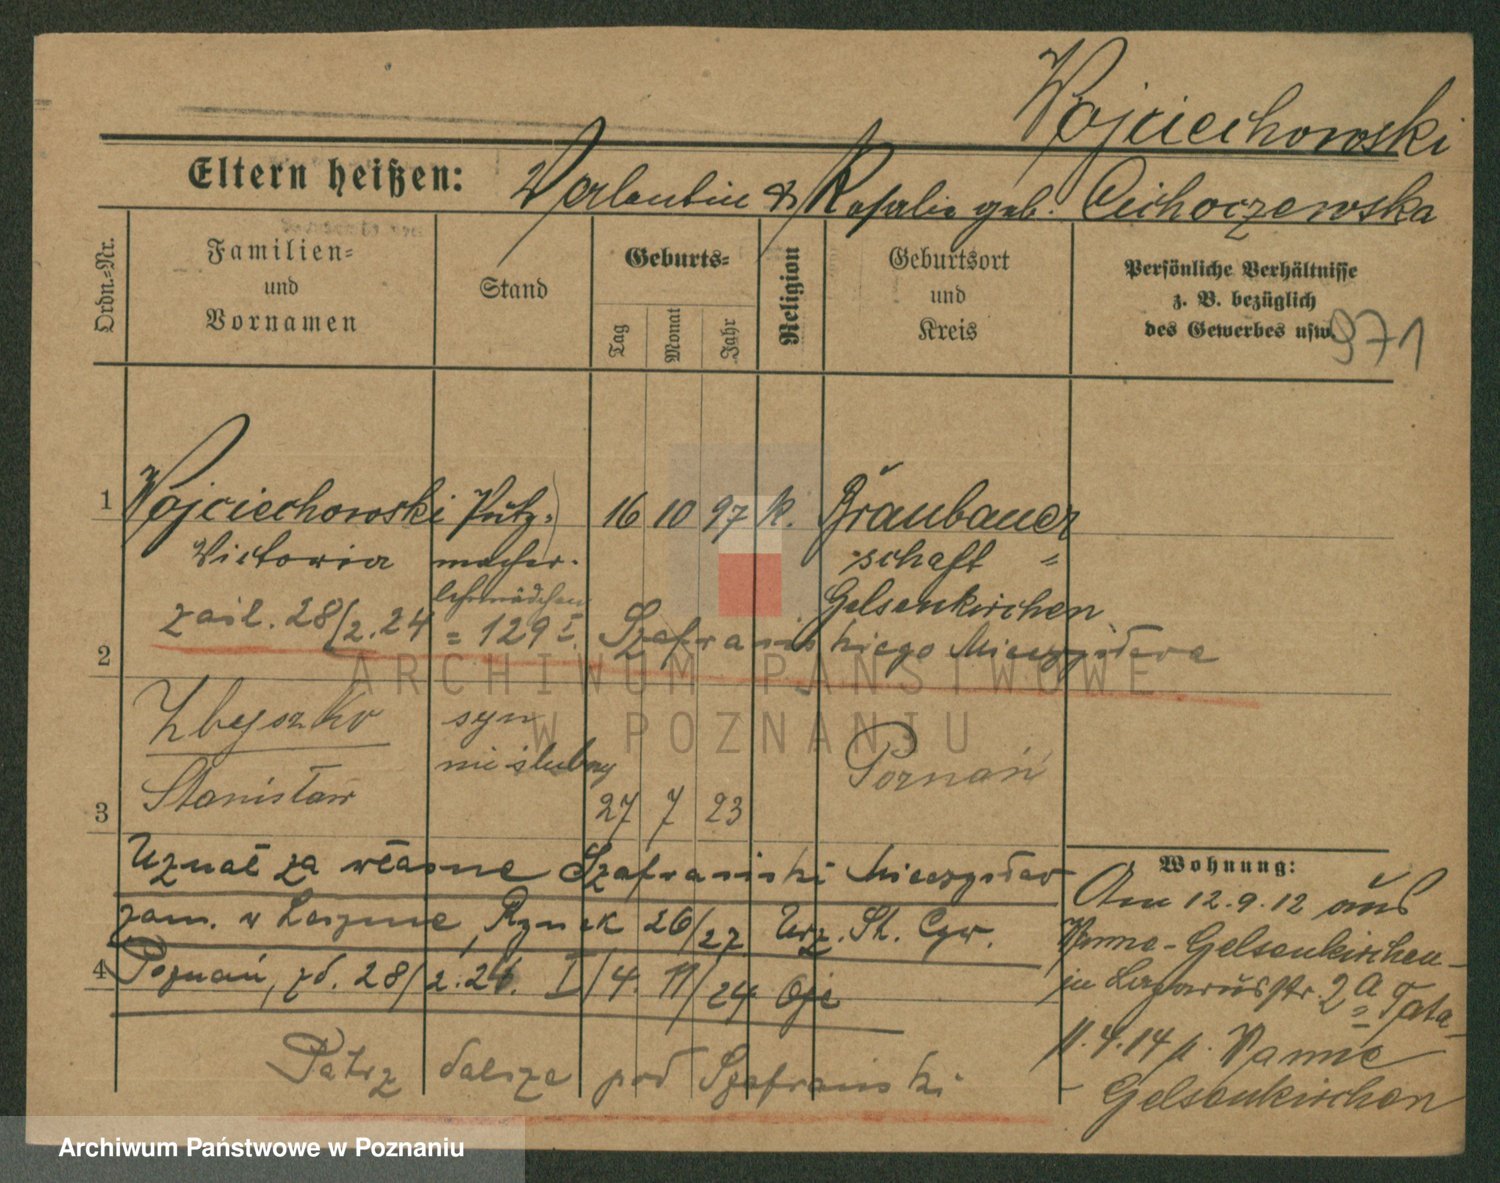 Wojciechowski
Eltern heißen: Valentin & Rosalie geb. Cichoczewska
Ordn.-Nr.
Familien-
und
Vornamen
Stand
Geburts-
Tag
Monat
Jahr
Religion
Geburtsort
und
Kreis
Persönliche Verhältnisse
z. B. bezüglich
des Gewerbes usw.
971
1 Wojciechowski Putz- 16 10 97 k. Braubauer
Victoria macher- schaft =
lehrmädchen Gelsenkirchen
zaśl. 28/2.24 = 129 I. Szafrańskiego Mieczysława
2
Zbyszko syn
nieślubny Poznań
Stanisław 27 7 23
3
Uznał za własne Szafrański Mieczysław
zam. w Lesznie, Rynek 26/27. Urz. St. Cyw.
4 Poznań, zd. 28/2.24. I/4. 11/24
Patrz dalsze pod Szafrański
Wohnung:
Am 12.9.12 aus
Wanne-Gelsenkirchen
in Lazarusstr. 2a
11.4.14 n. Wanne
Gelsenkirchen
ARCHIWUM PAŃSTWOWE
W POZNANIU
Archiwum Państwowe w Poznaniu